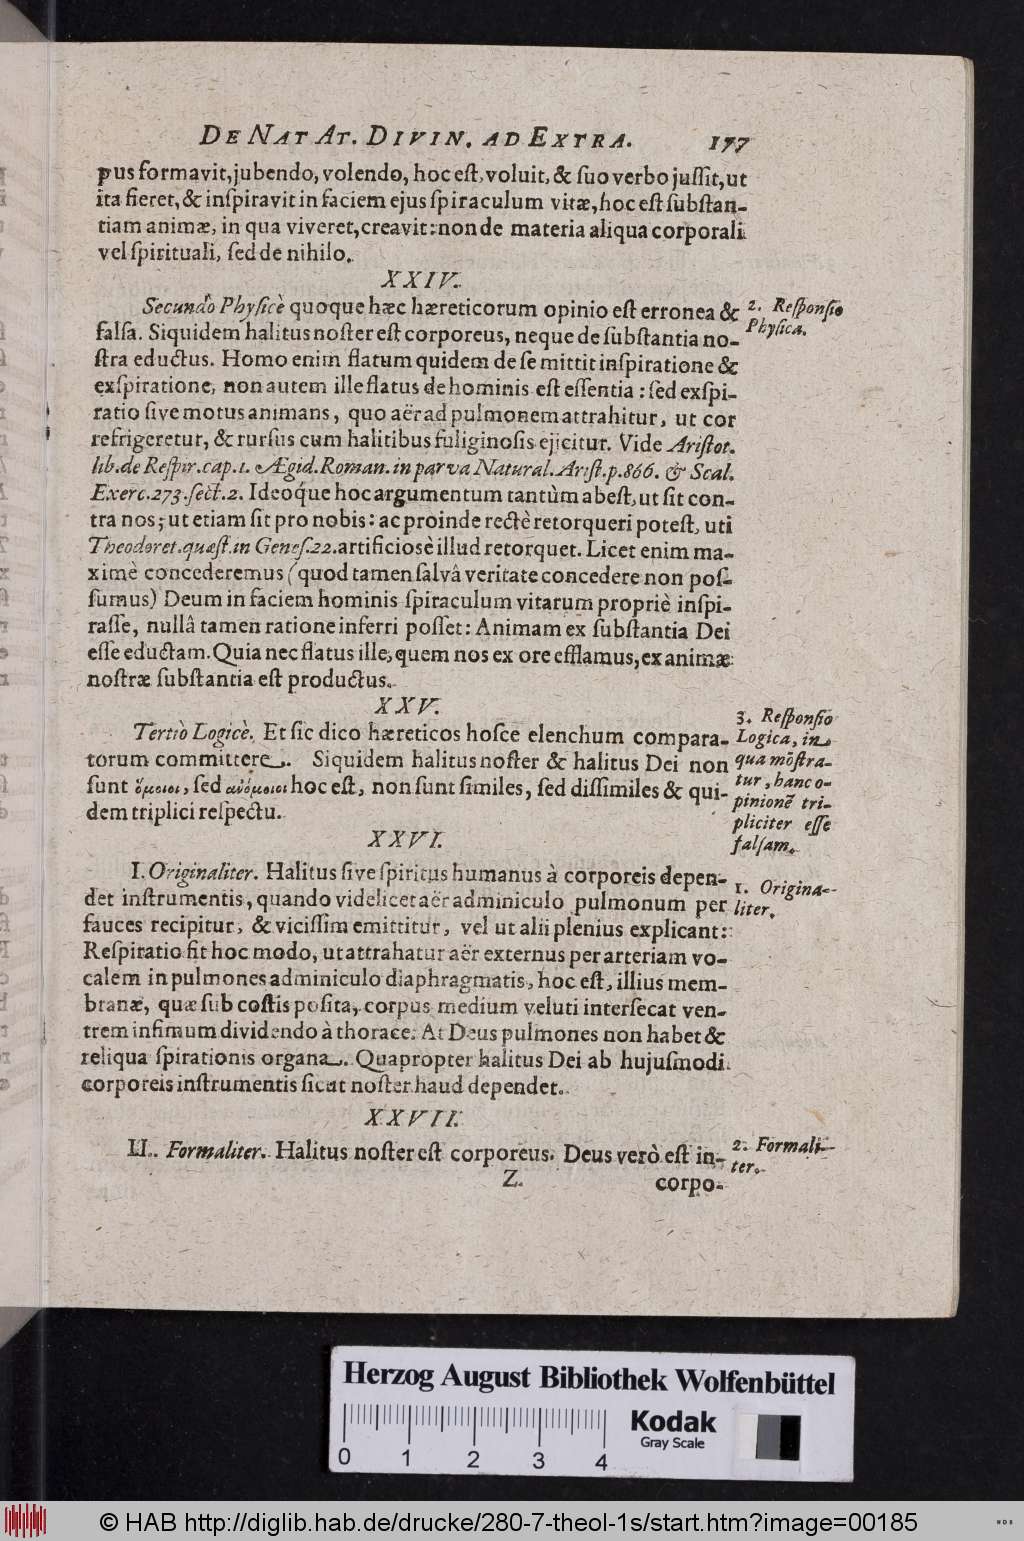 DE NAT AT. DIVIN. AD EXTRA. 177
pus formavit, jubendo, volendo, hoc est, voluit, & suo verbo jussit, ut
ita fieret, & inspiravit in faciem ejus spiraculum vitæ, hoc est substan-
tiam animæ, in qua viveret, creavit: non de materia aliqua corporali
vel spirituali, sed de nihilo.
XXIV.
Secundò Physicè quoque hæc hæreticorum opinio est erronea &
2. Responsio
Physica.
falsa. Siquidem halitus noster est corporeus, neque de substantia no-
stra eductus. Homo enim flatum quidem de se mittit inspiratione &
exspiratione, non autem ille flatus de hominis est essentia: sed exspi-
ratio sive motus animans, quo aër ad pulmonem attrahitur, ut cor
refrigeretur, & rursus cum halitibus fuliginosis ejicitur. Vide Aristot.
lib. de Respir. cap. 1. Ægid. Roman. in parva Natural. Arist. p. 866. & Scal.
Exerc. 273. sect. 2. Ideoq́ue hoc argumentum tantùm abest, ut sit con-
tra nos; ut etiam sit pro nobis: ac proinde rectè retorqueri potest, uti
Theodoret. quæst. in Genes. 22. artificiosè illud retorquet. Licet enim ma-
ximè concederemus (quod tamen salvâ veritate concedere non pos-
sumus) Deum in faciem hominis spiraculum vitarum propriè inspi-
rasse, nullâ tamen ratione inferri posset: Animam ex substantia Dei
esse eductam. Quia nec flatus ille, quem nos ex ore efflamus, ex animæ
nostræ substantia est productus.
XXV.
Tertiò Logicè. Et sic dico hæreticos hosce elenchum compara-
torum committere. Siquidem halitus noster & halitus Dei non
sunt ὅμοιοι, sed ἀνόμοιοι hoc est, non sunt similes, sed dissimiles & qui-
dem triplici respectu.
3. Responsio
Logica, in
qua mõstra-
tur, hanc o-
pinionẽ tri-
pliciter esse
falsam.
XXVI.
I. Originaliter. Halitus sive spiritus humanus à corporeis depen-
1. Origina-
liter.
det instrumentis, quando videlicet aër adminiculo pulmonum per
fauces recipitur, & vicissim emittitur, vel ut alii plenius explicant:
Respiratio fit hoc modo, ut attrahatur aër externus per arteriam vo-
calem in pulmones adminiculo diaphragmatis, hoc est, illius mem-
branæ, quæ sub costis posita, corpus medium veluti intersecat ven-
trem infimum dividendo à thorace. At Deus pulmones non habet &
reliqua spirationis organa. Quapropter halitus Dei ab hujusmodi
corporeis instrumentis sicut noster haud dependet.
XXVII.
II. Formaliter. Halitus noster est corporeus. Deus verò est in-
2. Formali-
ter.
Z. corpo-
Herzog August Bibliothek Wolfenbüttel
0 1 2 3 4
Kodak
Gray Scale
© HAB http://diglib.hab.de/drucke/280-7-theol-1s/start.htm?image=00185